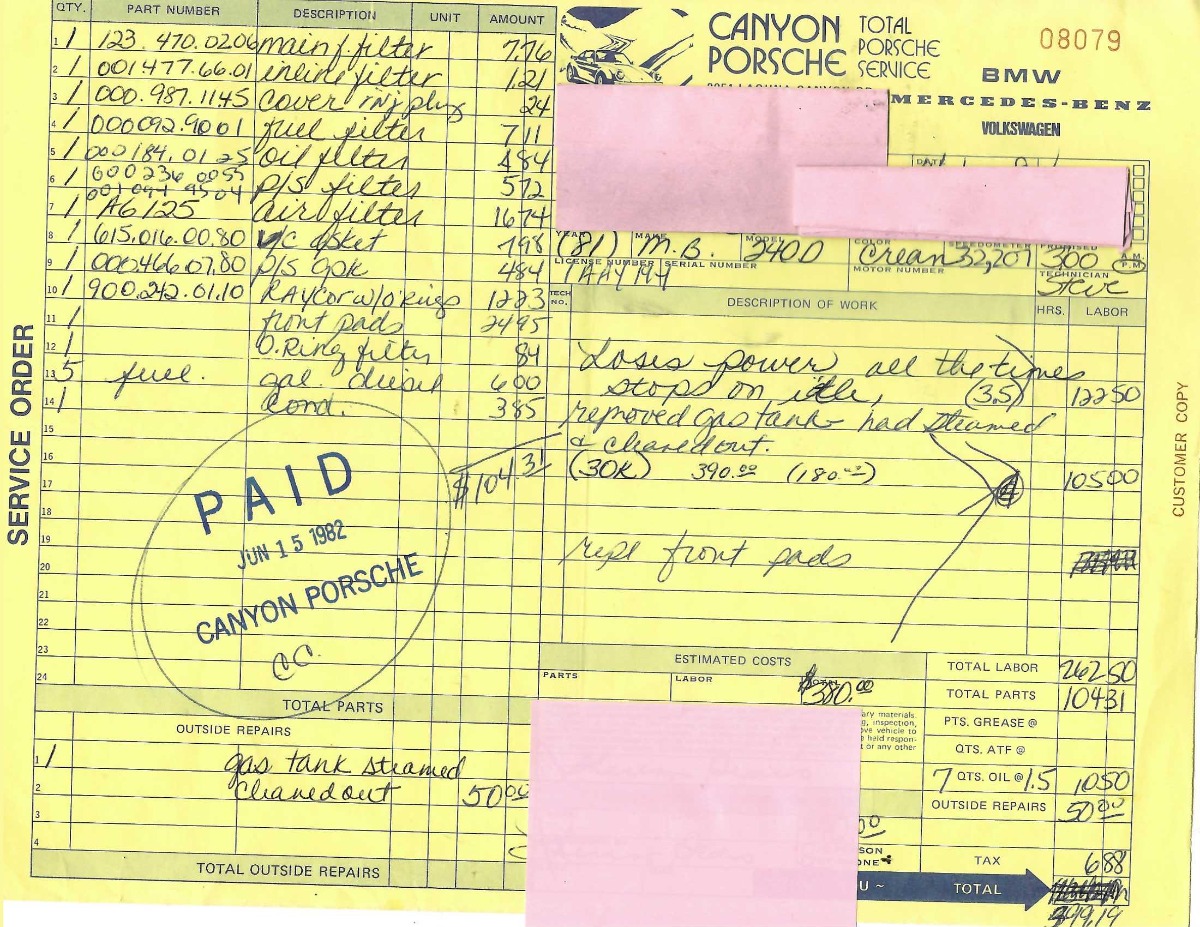 QTY. PART NUMBER DESCRIPTION UNIT AMOUNT
1 1 123.470.0206 main f. filter 7.76
2 1 001 477.66.01 inline filter 1.21
3 1 000.987.1145 cover inj plug 24
4 1 000092.9001 fuel filter 711
5 1 000184.01 25 oil filter 484
6 1 000236 0055 P/S filter 572
7 1 A6125 air filter 1674
8 1 615.016.00.80 V/C gsket 798
9 1 000.466.07.80 P/S gsk 484
10 1 900.242.01.10 RAYCOR w/O'Rings 1223
11 1 front pads 2495
12 1 O.Ring filter 84
13 5 fuel. gal. diesel 600
14 1 Cond. 385
15
16
17 $104.31
18
19
20
21
22
23
24
SERVICE ORDER
PAID
JUN 15 1982
CANYON PORSCHE
CC.
TOTAL PARTS
OUTSIDE REPAIRS
1 1 gas tank steamed
2 cleaned out 50 00
3
4
TOTAL OUTSIDE REPAIRS
CANYON PORSCHE
TOTAL PORSCHE SERVICE
08079
BMW
MERCEDES-BENZ
VOLKSWAGEN
DATE
YEAR MAKE MODEL COLOR SPEEDOMETER PROMISED
(81) M.B. 240D Crean 32,207 300 A.M. P.M.
LICENSE NUMBER SERIAL NUMBER MOTOR NUMBER TECHNICIAN
Steve
TECH NO. DESCRIPTION OF WORK HRS. LABOR
Loses power all the times
stops on idle, (3.5) 12250
removed gas tank had steamed
& cleaned out.
(30K) 390.00 (180.00) 4 10500
repl front pads
ESTIMATED COSTS
PARTS LABOR TOTAL
$380.00
ary materials.
inspection,
ove vehicle to
held respon-
t or any other
TOTAL LABOR 26250
TOTAL PARTS 10431
PTS. GREASE @
QTS. ATF @
7 QTS. OIL @ 1.5 1050
OUTSIDE REPAIRS 50 00
TAX 688
TOTAL
CUSTOMER COPY